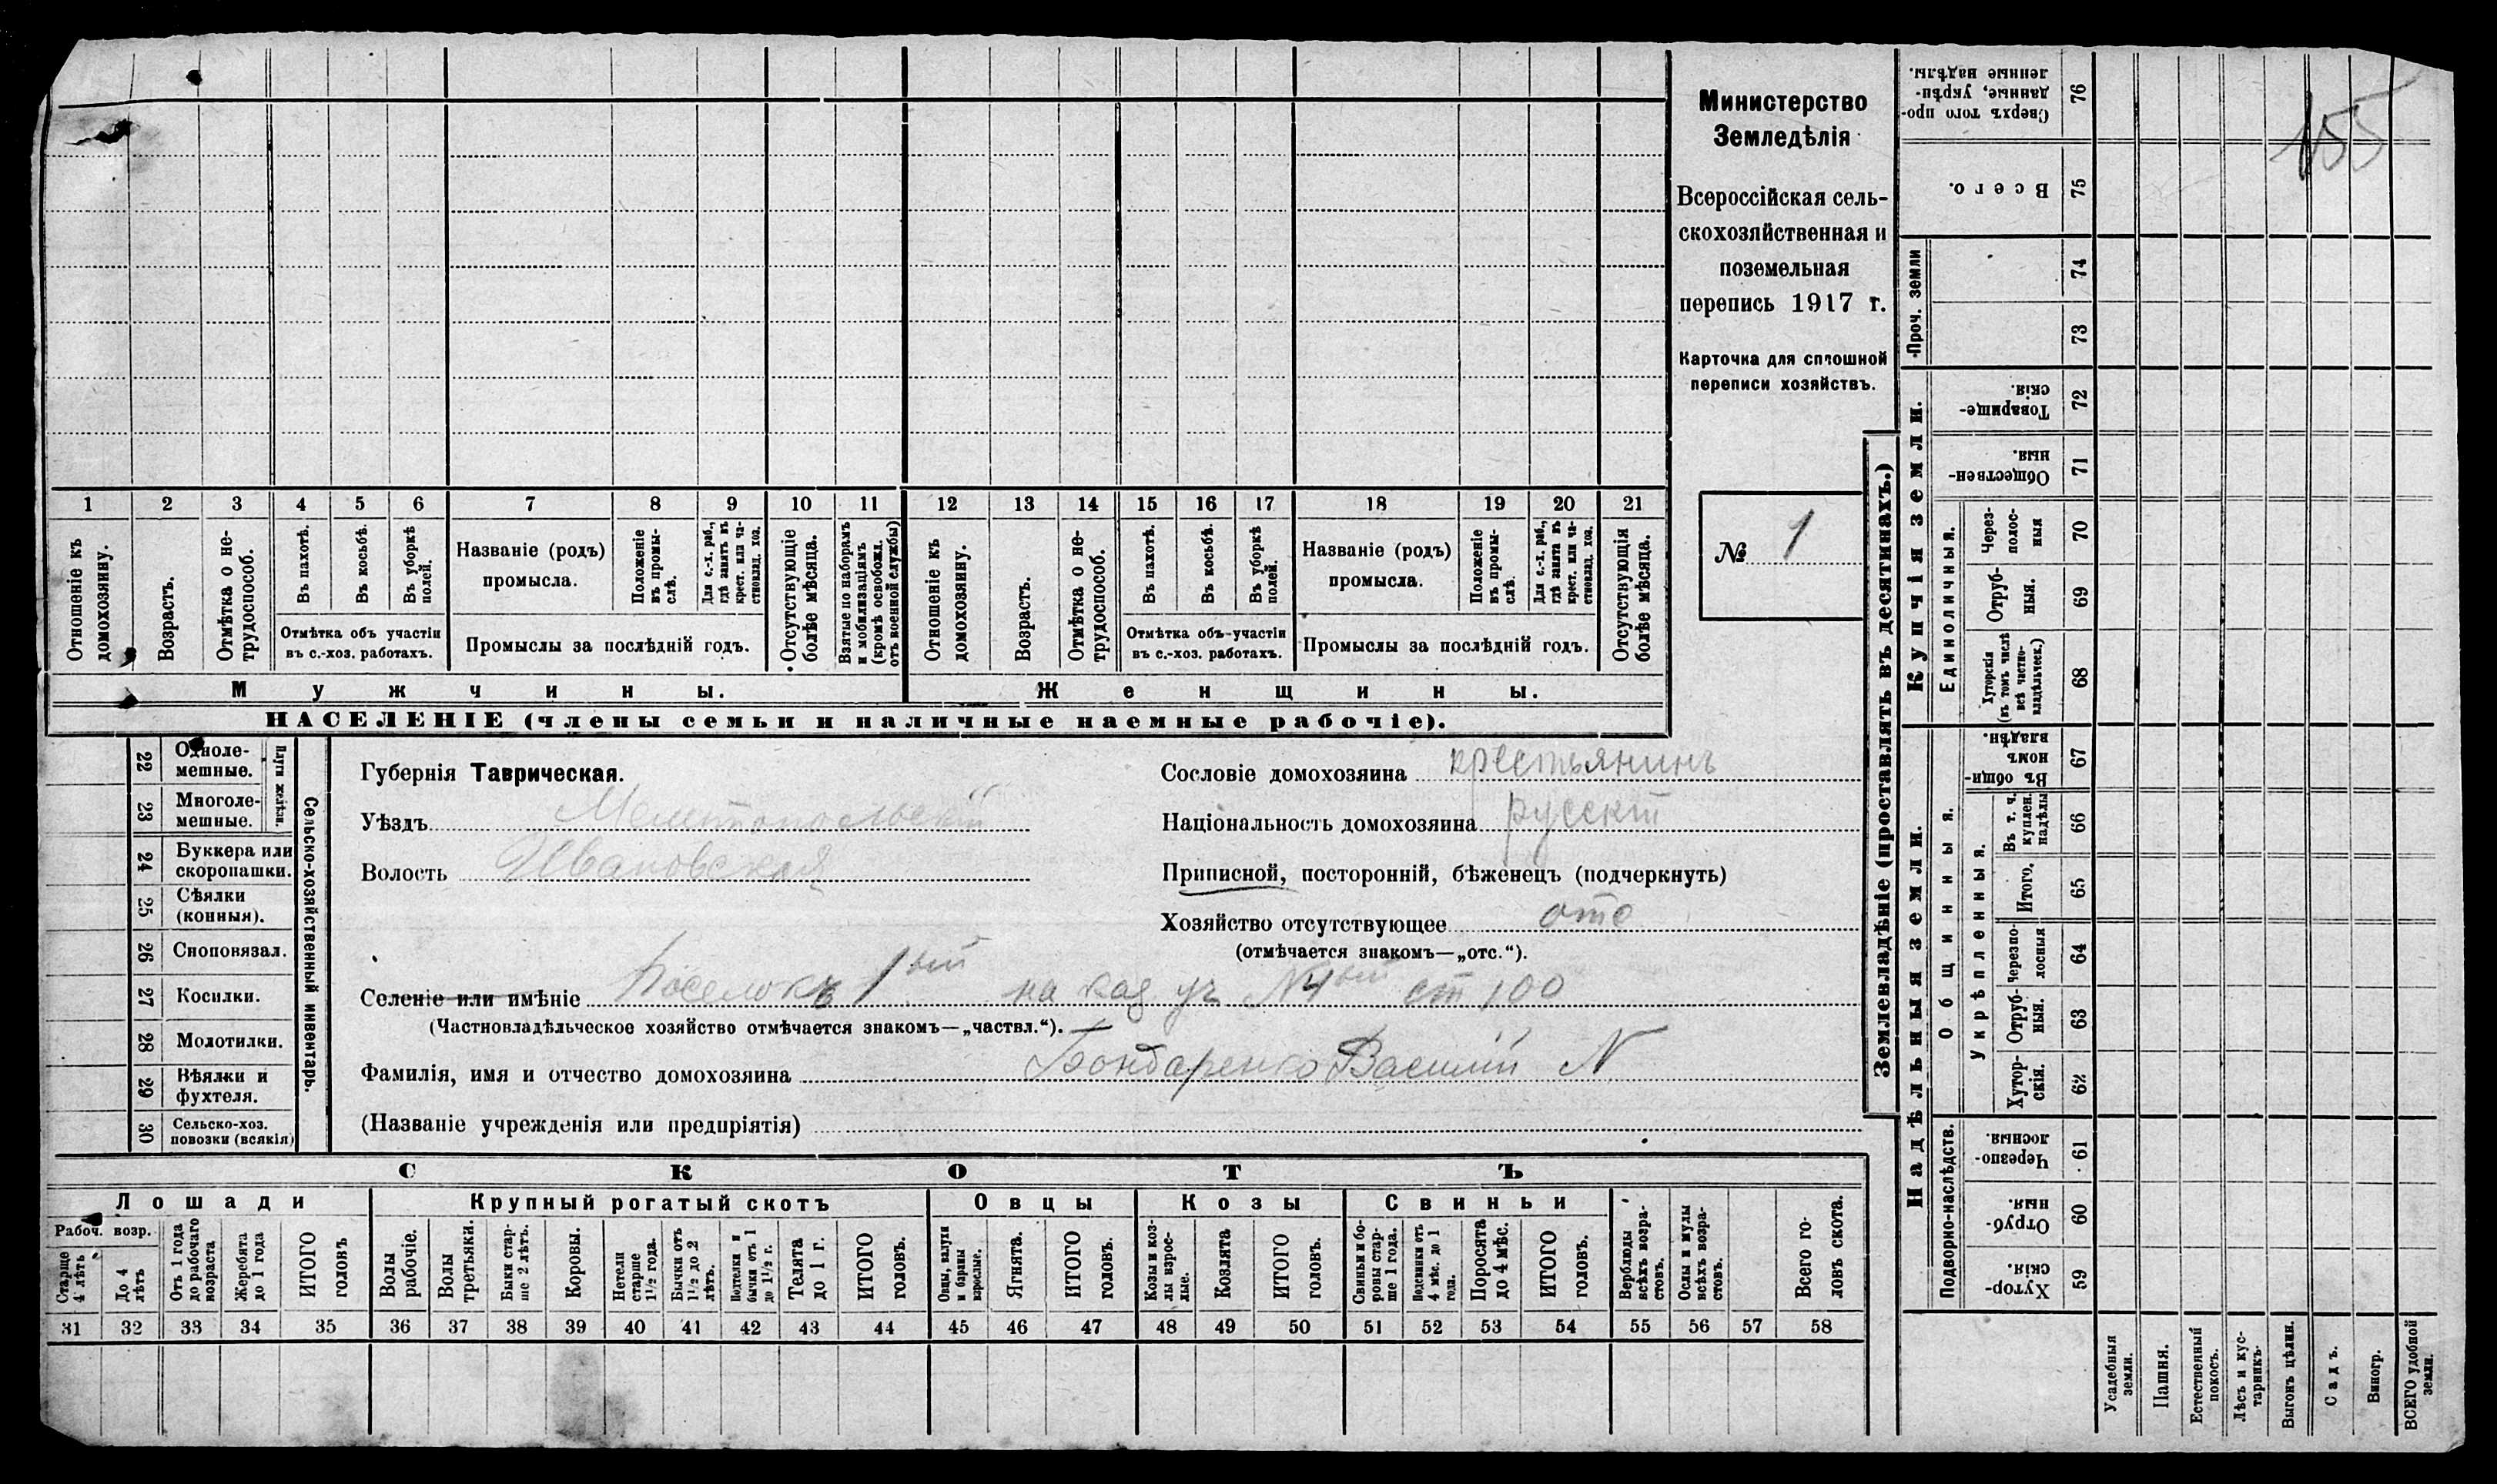 1 2 3 4 5 6 7 8 9 10 11 12 13 14 15 16 17 18 19 20 21
Отношеніе къ домохозяину.
Возрастъ.
Отмѣтка о не-
трудоспособ.
Въ пахотѣ.
Въ косьбѣ.
Въ уборкѣ
полей.
Отмѣтка объ участіи
въ с.-хоз. работахъ.
Названіе (родъ)
промысла.
Положеніе
въ промы-
слѣ.
Для с.-х. раб.,
гдѣ занятъ въ
крест. или ча-
стновлад. хоз.
Промыслы за послѣдній годъ.
Отсутствующіе
болѣе мѣсяца.
Взятые по наборамъ
и мобилизаціямъ
(кромѣ освобожд.
отъ военной службы)
Отношеніе къ
домохозяину.
Возрастъ.
Отмѣтка о не-
трудоспособ.
Въ пахотѣ.
Въ косьбѣ.
Въ уборкѣ
полей.
Отмѣтка объ участіи
въ с.-хоз. работахъ.
Названіе (родъ)
промысла.
Положеніе
въ промы-
слѣ.
Для с.-х. раб.,
гдѣ занята въ
крест. или ча-
стновлад. хоз.
Промыслы за послѣдній годъ.
Отсутствующія
болѣе мѣсяца.
Мужчины.
Женщины.
НАСЕЛЕНІЕ (члены семьи и наличные наемные рабочіе).
Министерство
Земледѣлія
Всероссійская сель-
скохозяйственная и
поземельная
перепись 1917 г.
Карточка для сплошной
переписи хозяйствъ.
№ 1
22 Одноле-
мешные.
23 Многоле-
мешные.
Плуги желѣзн.
24 Буккера или
скоропашки.
25 Сѣялки
(конныя).
26 Сноповязал.
27 Косилки.
28 Молотилки.
29 Вѣялки и
фухтеля.
30 Сельско-хоз.
повозки (всякія)
Сельско-хозяйственный инвентарь.
Губернія Таврическая.
Уѣздъ Мелитопольскій
Волость Ивановская
Сословіе домохозяина крестьянинъ
Національность домохозяина русскій
Приписной, посторонній, бѣженецъ (подчеркнуть)
Хозяйство отсутствующее отс
(отмѣчается знакомъ—„отс.“).
Селеніе или имѣніе Поселокъ 1ый на каз уч № ст 100
(Частновладѣльческое хозяйство отмѣчается знакомъ—„частвл.“).
Фамилія, имя и отчество домохозяина Бондаренко Василій N
(Названіе учрежденія или предпріятія)
СКОТЪ
Лошади
Рабоч. возр.
Старше
4 лѣтъ
До 4
лѣтъ
Отъ 1 года
до рабочаго
возраста
Жеребята
до 1 года
ИТОГО
головъ
Крупный рогатый скотъ
Волы
рабочіе.
Волы
третьяки.
Быки стар-
ше 2 лѣтъ.
Коровы.
Нетели
старше
1½ года.
Бычки отъ
1½ до 2
лѣтъ.
Подтелки и
бычки отъ 1
до 1½ г.
Телята
до 1 г.
ИТОГО
головъ.
Овцы
Овцы, валухи
и бараны
взрослые.
Ягнята.
ИТОГО
головъ.
Козы
Козы и коз-
лы взрос-
лые.
Козлята
ИТОГО
головъ.
Свиньи
Свиньи и бо-
ровы стар-
ше 1 года.
Подсвинки отъ
4 мѣс. до 1
года.
Поросята
до 4 мѣс.
ИТОГО
головъ.
Верблюды
всѣхъ возра-
стовъ.
Ослы и мулы
всѣхъ возра-
стовъ.
Всего го-
ловъ скота.
31 32 33 34 35 36 37 38 39 40 41 42 43 44 45 46 47 48 49 50 51 52 53 54 55 56 57 58
Землевладѣніе (проставлять въ десятинахъ.)
155
Сверхъ того про-
данные, укрѣп-
ленные надѣлы.
76
Всего.
75
Проч. земли
74
73
Купчія земли.
Товарище-
скія.
72
Обществен-
ныя.
71
Единоличныя.
Через-
полос-
ныя
70
Отруб-
ныя.
69
Хуторскія
(въ томъ числѣ
всѣ частно-
владѣльческ.)
68
Надѣльныя земли.
Общинныя.
Въ общи-
номъ
владѣн.
67
Укрѣпленныя.
Въ т. ч.
куплен.
надѣлы
66
Итого.
65
Черезпо-
лосныя
64
Отруб-
ныя.
63
Хутор-
скія.
62
Подворно-наслѣдств.
Черезпо-
лосныя.
61
Отруб-
ныя.
60
Хутор-
скія.
59
Усадебныя
земли.
Пашня.
Естественный
покосъ.
Лѣсъ и кус-
тарникъ.
Выгонъ цѣлин.
Садъ.
Виногр.
ВСЕГО удобной
земли.